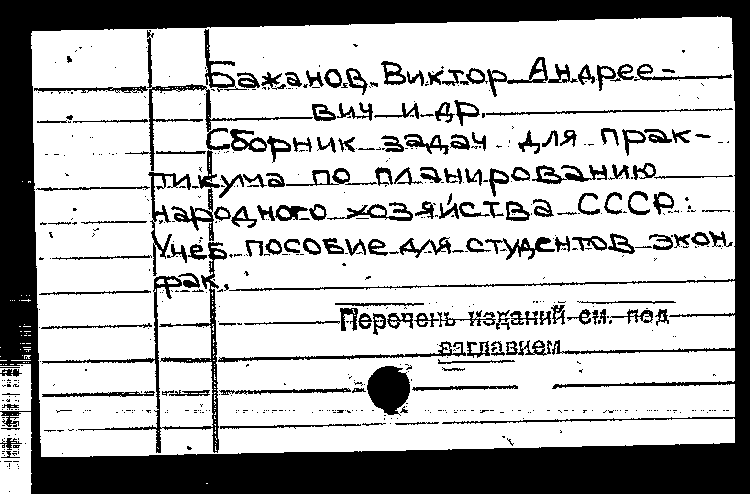 Бажанов Виктор Андрее-
вич и др.
Сборник задач для прак-
тикума по планированию
народного хозяйства СССР:
Учеб. пособие для студентов экон.
фак.
Перечень изданий см. под
заглавием